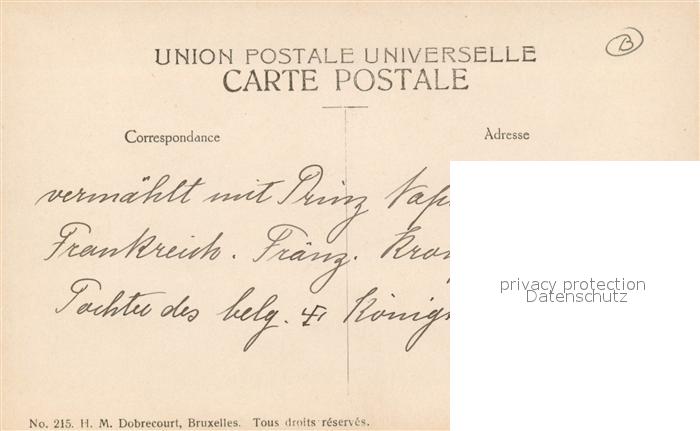 UNION POSTALE UNIVERSELLE
CARTE POSTALE
B
Correspondance
Adresse
vermählt mit Prinz
Frankreich. Franz.
Tochter des belg. König
privacy protection
Datenschutz
No. 215. H. M. Dobrecourt, Bruxelles. Tous droits réservés.